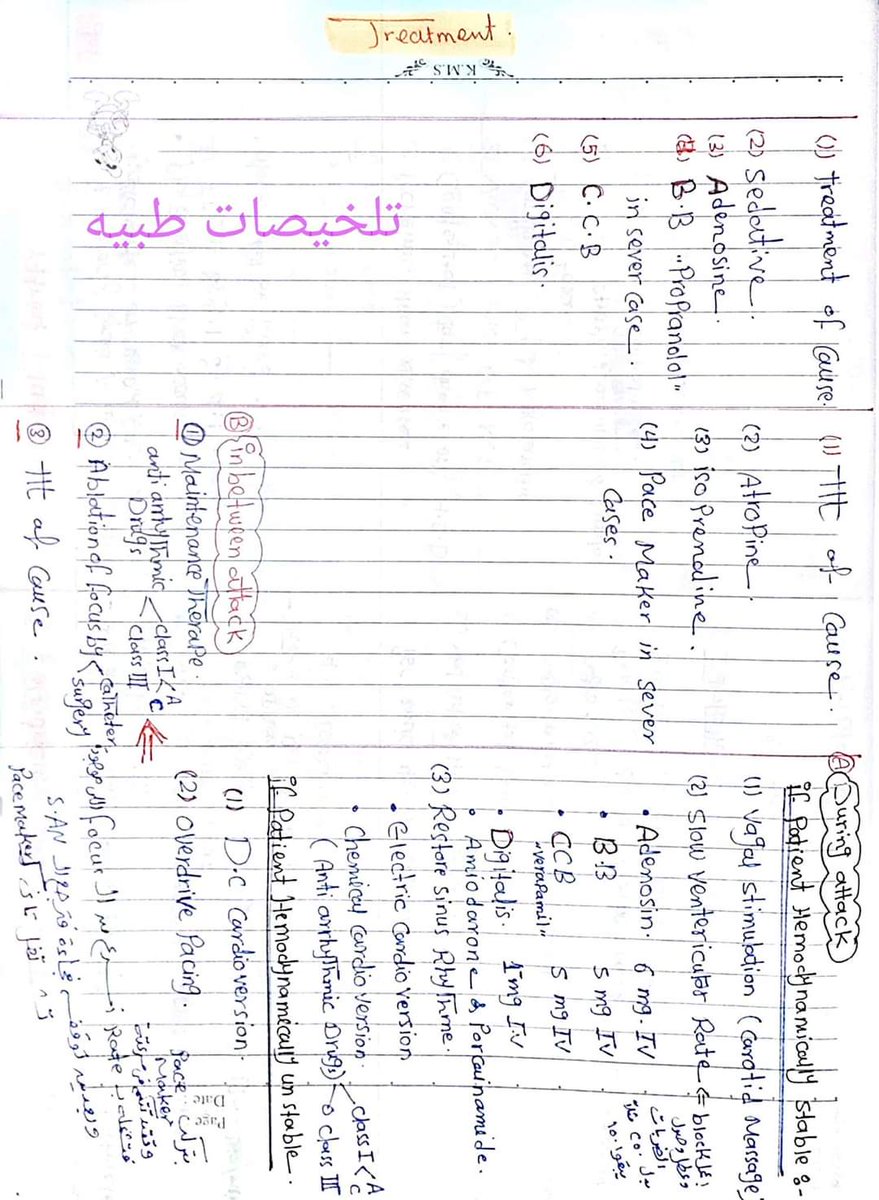 Treatment.
K.M.S
(1) treatment of Cause.
(2) Sedative.
(3) Adenosine.
B.B "Propranolol"
in sever case.
(5) C.C.B
(6) Digitalis.
تلخيصات طبيه
(1) ttt of Cause.
(2) Atropine.
(3) isoprenaline.
(4) Pace Maker in sever
Cases.
Ⓑ in between attack
① Maintenance Therape.
anti arrhythmic
Drugs
class I < A
C
class III
② Ablation of focus by < catheter.
surgery
③ ttt of Cause.
Ⓐ During attack
if Patient Hemodynamically stable :-
(1) Vagal stimulation (Carotid Massage)
(2) Slow Ventericular Rate ⇐ block
• Adenosin. 6 mg. IV
• B.B 5 mg IV
• CCB 5 mg IV
"verapamil"
• Digitalis. 1 mg I.V
• Amiodarone & Porcainamide.
(3) Restore sinus Rhythme.
• Electric Cardioversion
• Chemical cardioversion.
(Anti arrhythmic Drugs)
class I < A
C
class III
if Patient Hemodynamically unstable.
(1) D.C Cardioversion.
(2) Overdrive Pacing.
Pace
Maker
Rate
focus
S.AN
Pacemaker
Page
Date